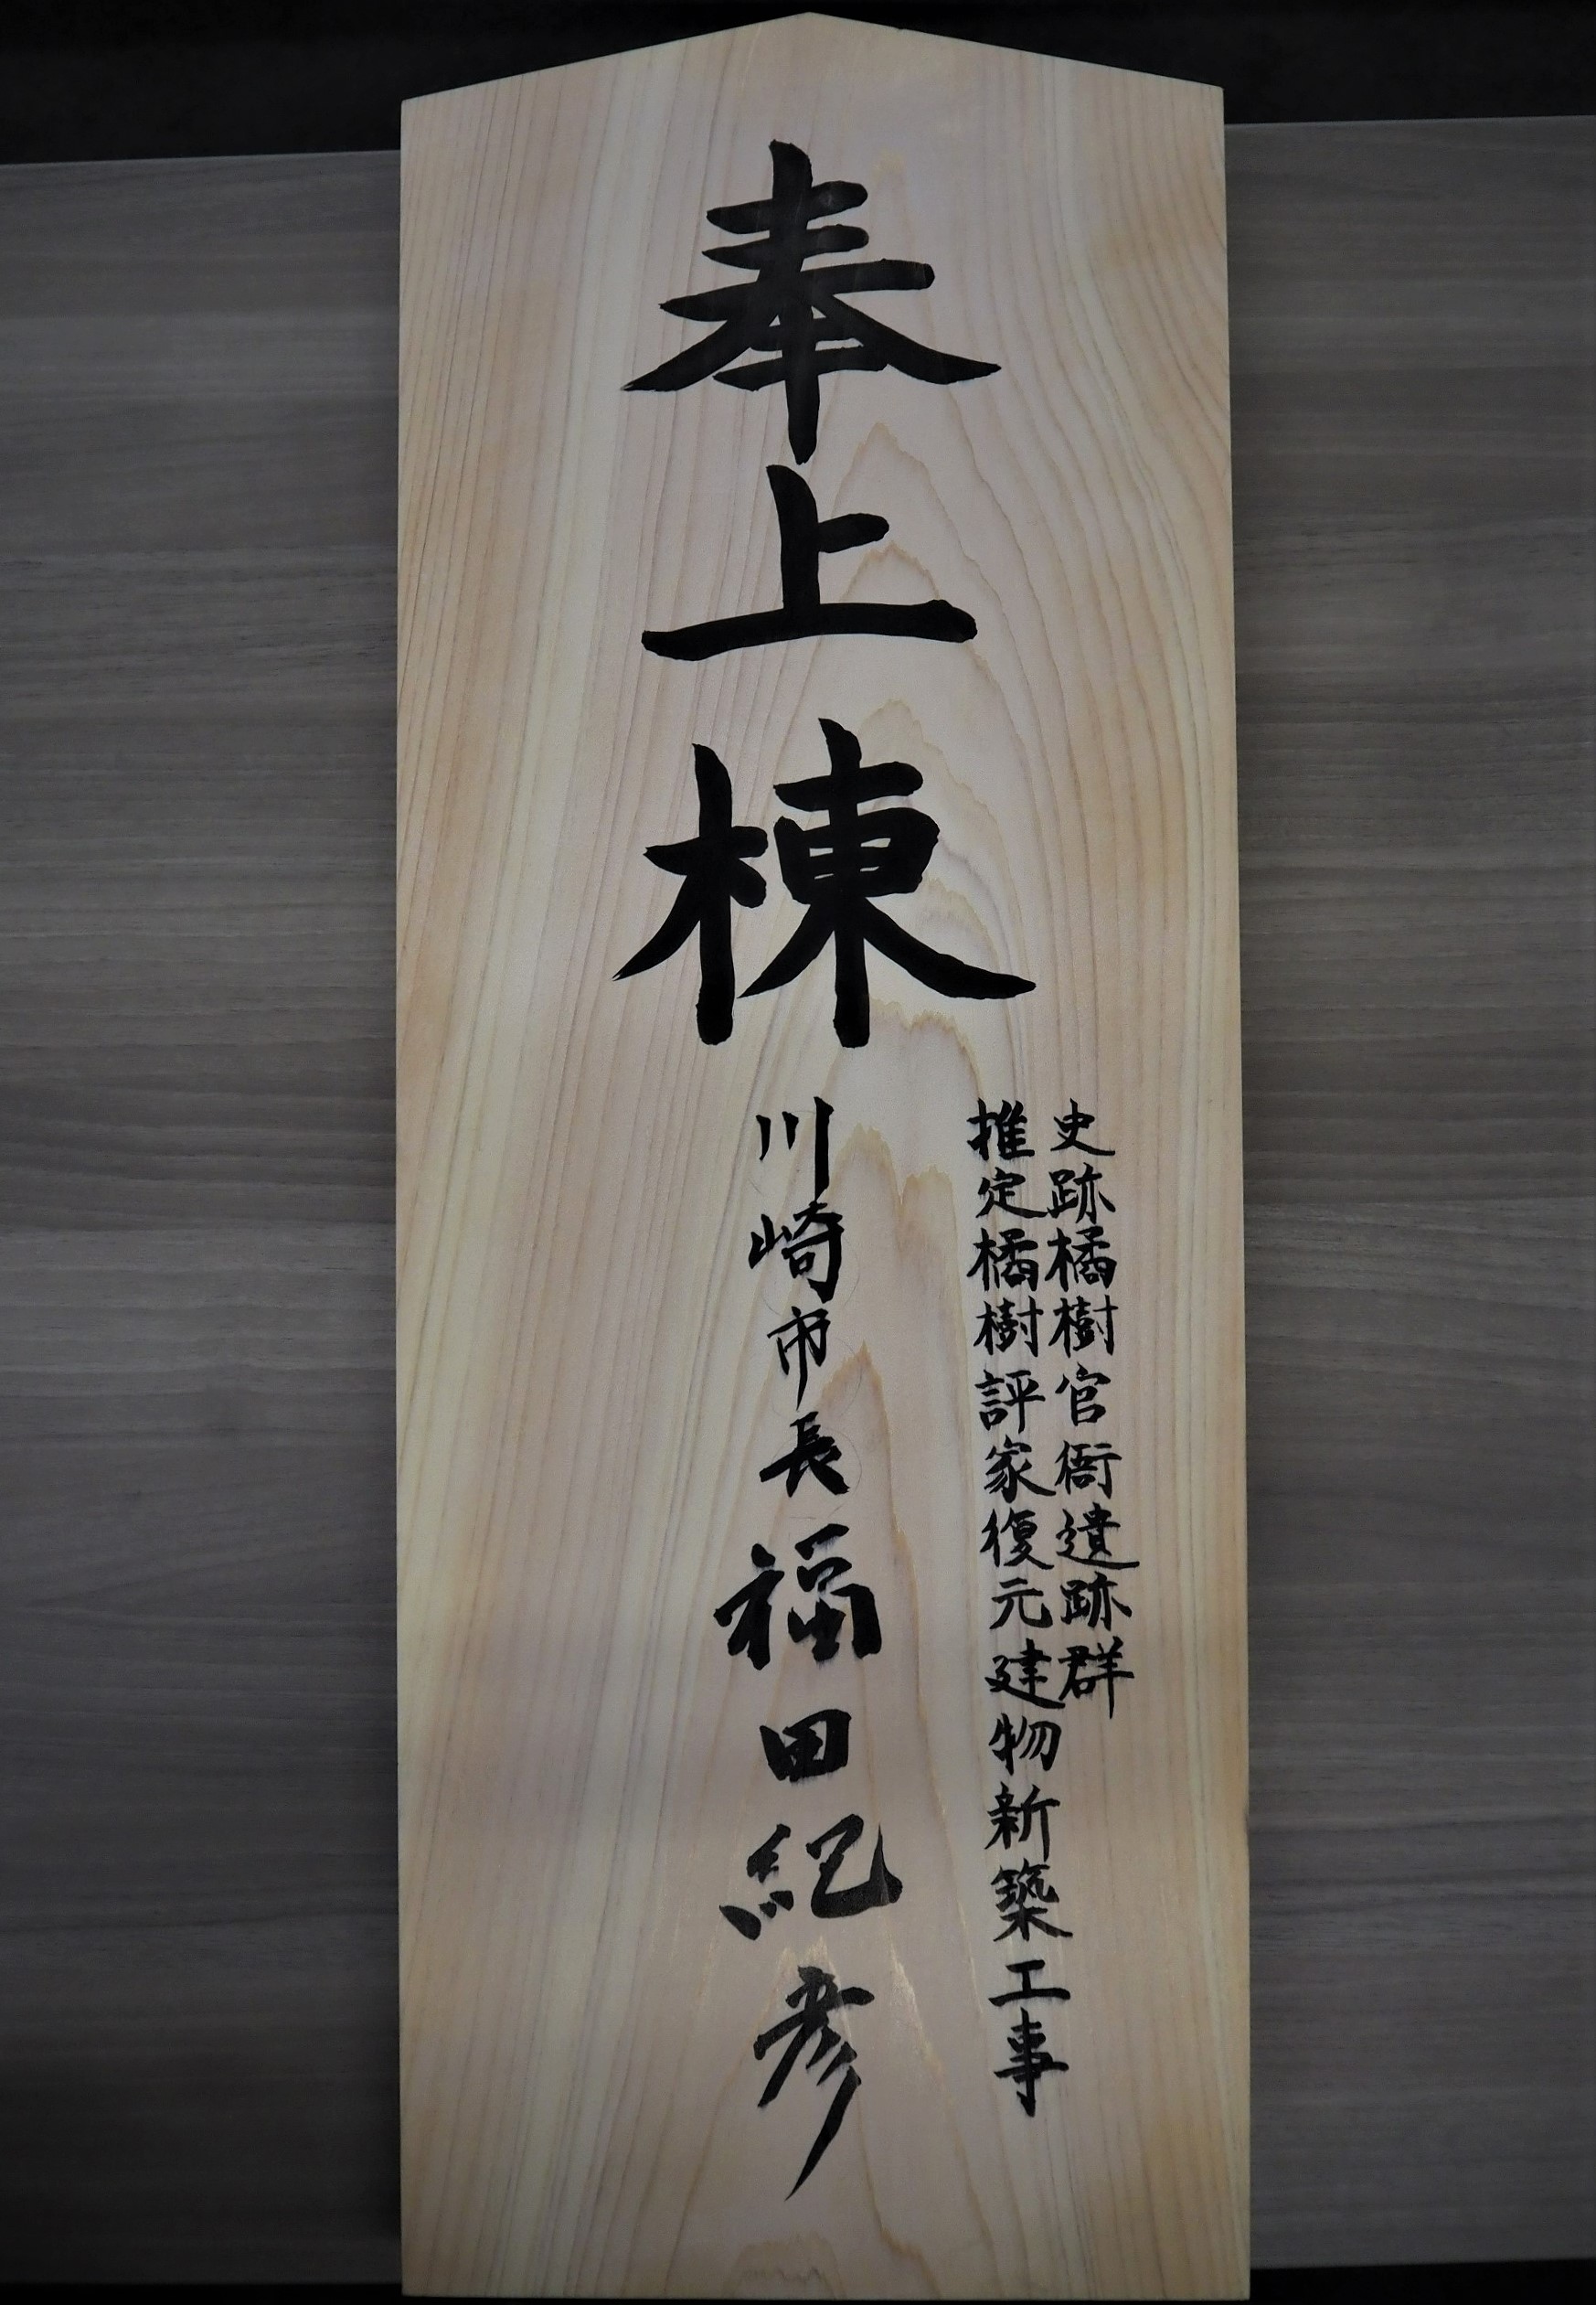 奉上棟
史跡橘樹官衙遺跡群
推定橘樹評家復元建物新築工事
川崎市長福田紀彦